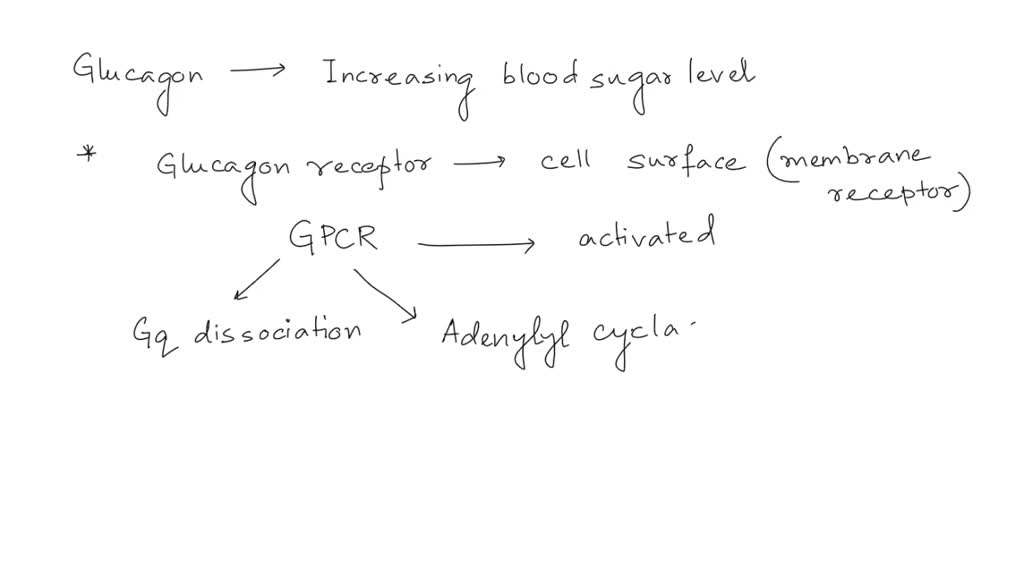 Glucagon → Increasing blood sugar level
* Glucagon receptor → cell surface (membrane
receptor)
GPCR → activated
Gq dissociation Adenylyl cycla